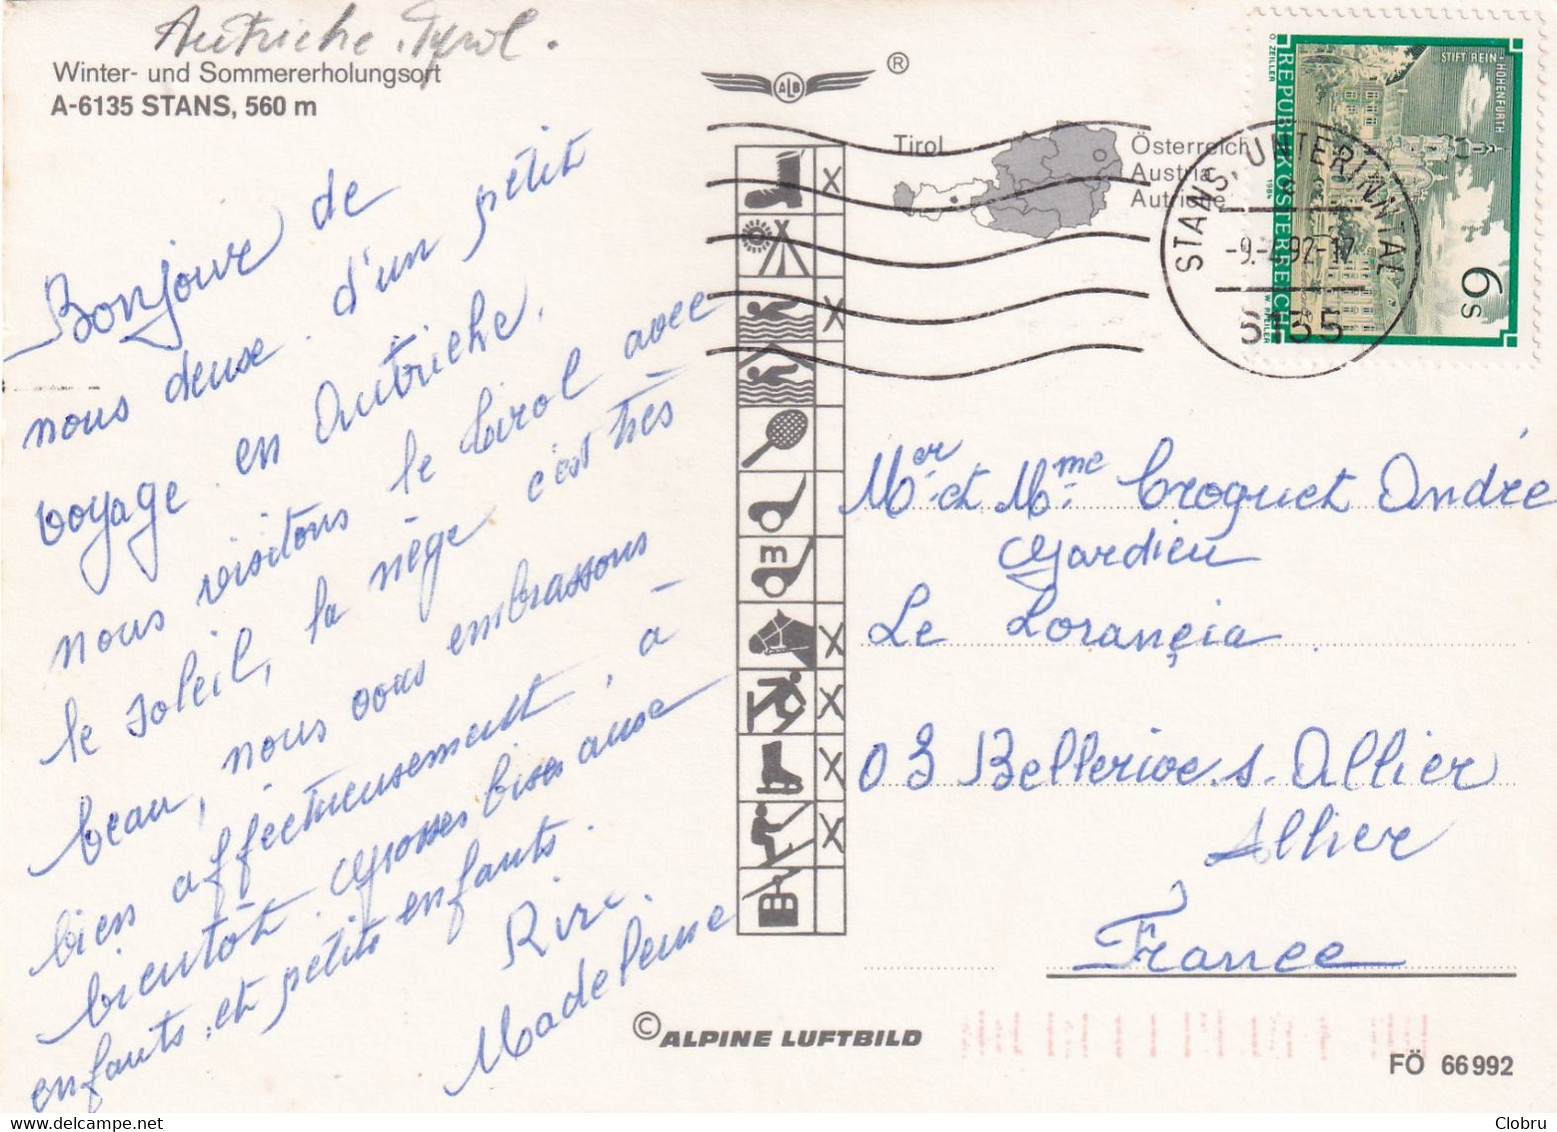 Autriche. Tyrol.
Winter- und Sommererholungsort
A-6135 STANS, 560 m
Bonjour de
nous deux. d'un petit
voyage en Autriche.
nous visitons le Tirol avec
le soleil, la nège c'est très
beau, nous vous embrassons
bien affectueusement, à
bientôt grosses bises aux
enfants et petits enfants.
Madeleine
ALB
®
Tirol
Österreich
Austria
Autriche
m
REPUBLIK ÖSTERREICH
STIFT REIN-HOHENFURTH
6 S
1984
O. ZEILLER
W. PFEILER
STANS, UNTERINNTAL
92-17
6135
Mer et Mme Croguet André
Gardien
Le
03 Bellerive s. Allier
Allier
France
© ALPINE LUFTBILD
FÖ 66992
Clobru